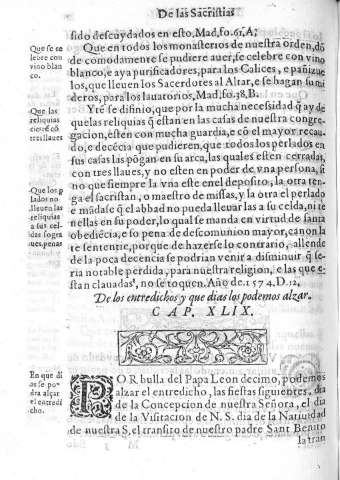 De las Sacristias
sido descuydados en esto. Mad, fo. 61, A;
Que se ce
lebre con
vino blan
co.
Que en todos los monasterios de nuestra orden, dõ
de comodamente se pudiere auer, se celebre con vino
blanco, e aya purificadores, para los Calices, e pañizue
los, que lleuen los Sacerdotes al Altar, e se hagan sumi
deros, para los lauatorios, Mad, fo. 38, B.
Que las
reliquias
ciere cõ
tres llaues
Yte se difinio, que por la mucha necessidad q̃ ay de
q̃uelas reliquias q̃ estan en las casas de nuestra congre
gacion, esten con mucha guardia, e cõ el mayor recau
do, e decẽcia que pudieren, que todos los perlados en
sus casas las põgan en su arca, las quales esten cerradas,
con tres llaues, y no esten en poder de vna persona, si
no que siempre la vna este en el deposito, la otra ten
Que los p̃
lados no
lleuen las
reliquias
a sus cel
das so graues penas
ga el sacristan, o maestro de missas, y la otra el perlado
e mãdase q̃ el abad no pueda lleuar las a su celda, ni te
nellas en su poder, lo qual se manda en virtud de santa
obediẽcia, e so pena de descomunion mayor, canon la
te sententie, porque de hazerse lo contrario, allende
de la poca decencia se podrian venir a disminuir q̃ se
ria notable perdida, para nuestra religion, e las que es
tan clauadas, no se toquen. Año de. 1574. D. 12,
De los entredichos y que dias los podemos alzar.
CAP. XLIX.
En que di
as se po
dra alçar
el entredi
cho.
POR bulla del Papa Leon decimo, podemos
alzar el entredicho, las fiestas siguientes, dia
de la Concepcion de nuestra Señora, el dia
de la Visitacion de N. S. dia de la Natiuidad
de nuestra S, el transito de nuestro padre Sant Benito
la tran